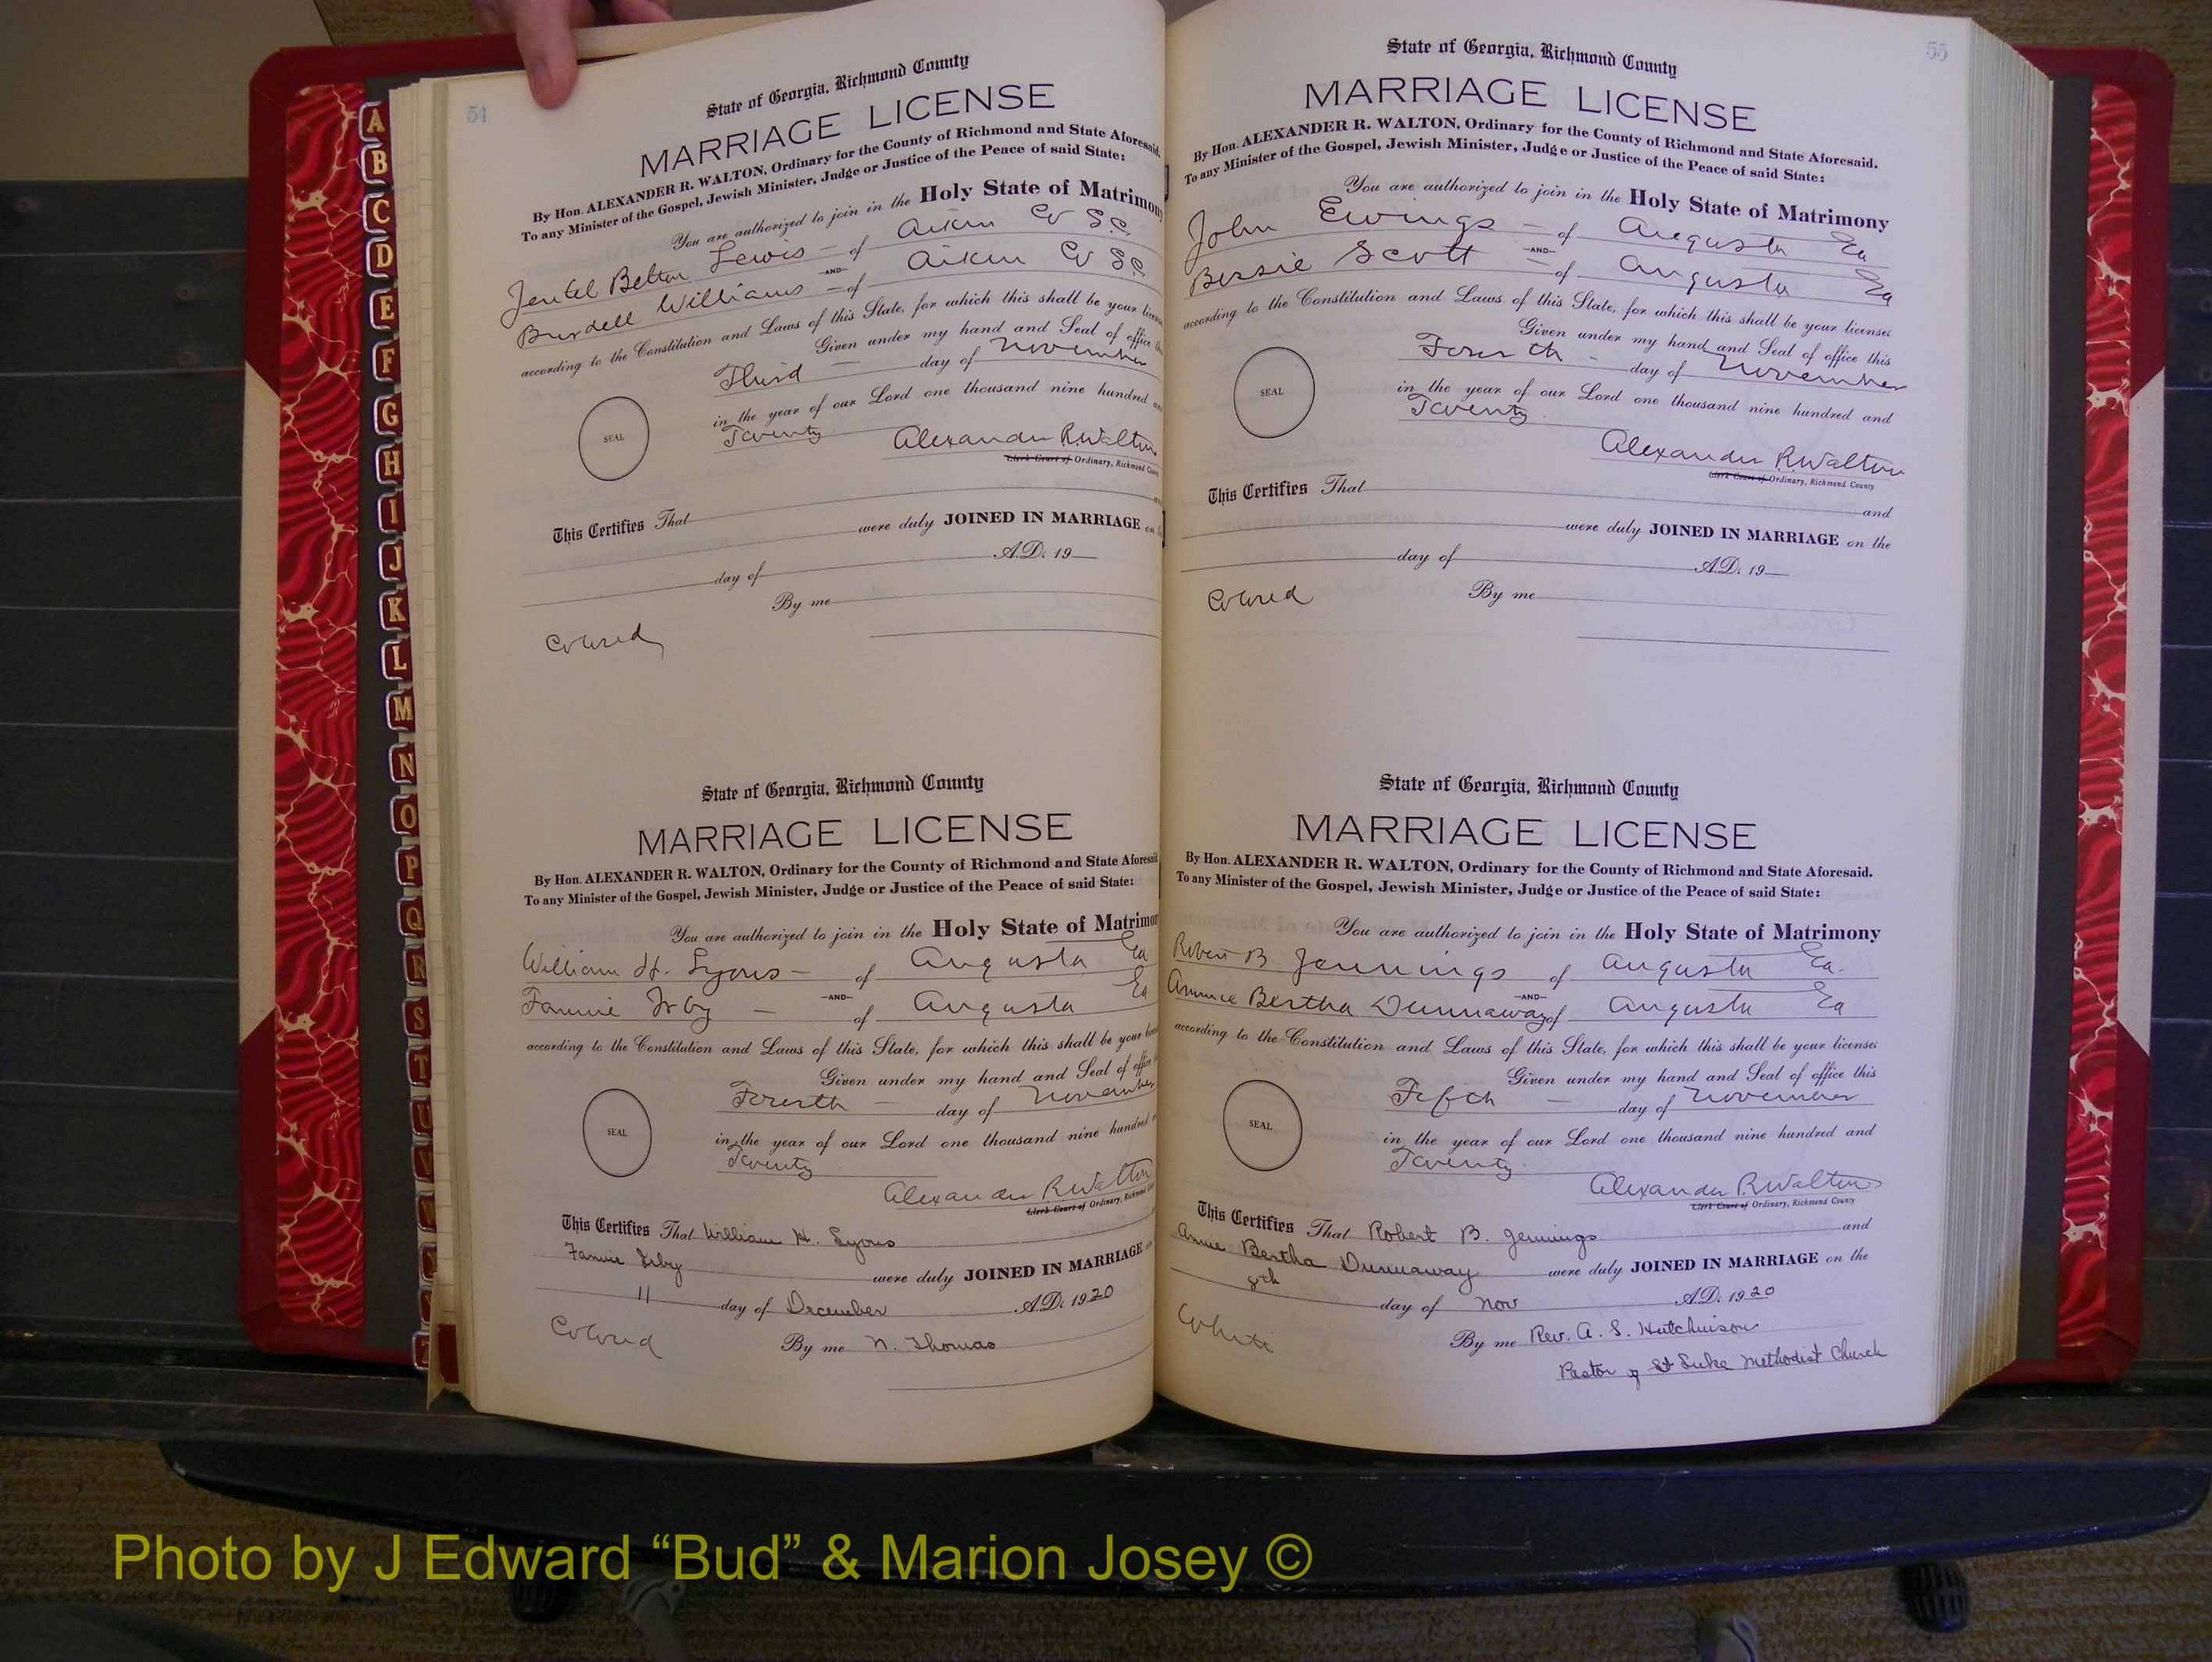 A
B
C
D
E
F
G
H
I
J
K
L
M
N
O
P
Q
R
S
T
U
V
W
54
State of Georgia, Richmond County
MARRIAGE LICENSE
By Hon. ALEXANDER R. WALTON, Ordinary for the County of Richmond and State Aforesaid.
To any Minister of the Gospel, Jewish Minister, Judge or Justice of the Peace of said State:
You are authorized to join in the Holy State of Matrimony
Belton Lewis — of Aiken Co S.C.
—AND—
Burdell Williams — of Aiken Co S.C.
according to the Constitution and Laws of this State, for which this shall be your license
Given under my hand and Seal of office th
Third — day of November
SEAL
in the year of our Lord one thousand nine hundred an
Twenty
Alexander R. Walton
Clerk Court of Ordinary, Richmond County
This Certifies That
were duly JOINED IN MARRIAGE on
day of A.D. 19
By me
Colored
State of Georgia, Richmond County
MARRIAGE LICENSE
By Hon. ALEXANDER R. WALTON, Ordinary for the County of Richmond and State Aforesaid
To any Minister of the Gospel, Jewish Minister, Judge or Justice of the Peace of said State:
You are authorized to join in the Holy State of Matrimon
William H. Lyons — of Augusta Ga
—AND—
Fannie Irby — of Augusta Ga
according to the Constitution and Laws of this State, for which this shall be your
Given under my hand and Seal of office
Fourth — day of November
SEAL
in the year of our Lord one thousand nine hundred
Twenty
Alexander R. Walton
Clerk Court of Ordinary, Richmond
This Certifies That William H. Lyons
Fannie Irby were duly JOINED IN MARRIAGE
11 day of December A.D. 1920
Colored By me N. Thomas
55
State of Georgia, Richmond County
MARRIAGE LICENSE
By Hon. ALEXANDER R. WALTON, Ordinary for the County of Richmond and State Aforesaid.
To any Minister of the Gospel, Jewish Minister, Judge or Justice of the Peace of said State:
You are authorized to join in the Holy State of Matrimony
John Ewings — of Augusta Ga
—AND—
Bessie Scott — of Augusta Ga
according to the Constitution and Laws of this State, for which this shall be your license:
Given under my hand and Seal of office this
Fourth — day of November
SEAL
in the year of our Lord one thousand nine hundred and
Twenty
Alexander R. Walton
Clerk Court of Ordinary, Richmond County
This Certifies That
and
were duly JOINED IN MARRIAGE on the
day of A.D. 19
Colored By me
State of Georgia, Richmond County
MARRIAGE LICENSE
By Hon. ALEXANDER R. WALTON, Ordinary for the County of Richmond and State Aforesaid.
To any Minister of the Gospel, Jewish Minister, Judge or Justice of the Peace of said State:
You are authorized to join in the Holy State of Matrimony
Robert B Jennings of Augusta Ga.
—AND—
Annie Bertha Dunnaway of Augusta Ga
according to the Constitution and Laws of this State, for which this shall be your license:
Given under my hand and Seal of office this
Fifth — day of November
SEAL
in the year of our Lord one thousand nine hundred and
Twenty
Alexander R. Walton
Clerk Court of Ordinary, Richmond County
This Certifies That Robert B. Jennings and
Annie Bertha Dunnaway were duly JOINED IN MARRIAGE on the
8th day of Nov A.D. 1920
White By me Rev. A. S. Hutchison
Pastor of St Luke Methodist Church
Photo by J Edward “Bud” & Marion Josey ©